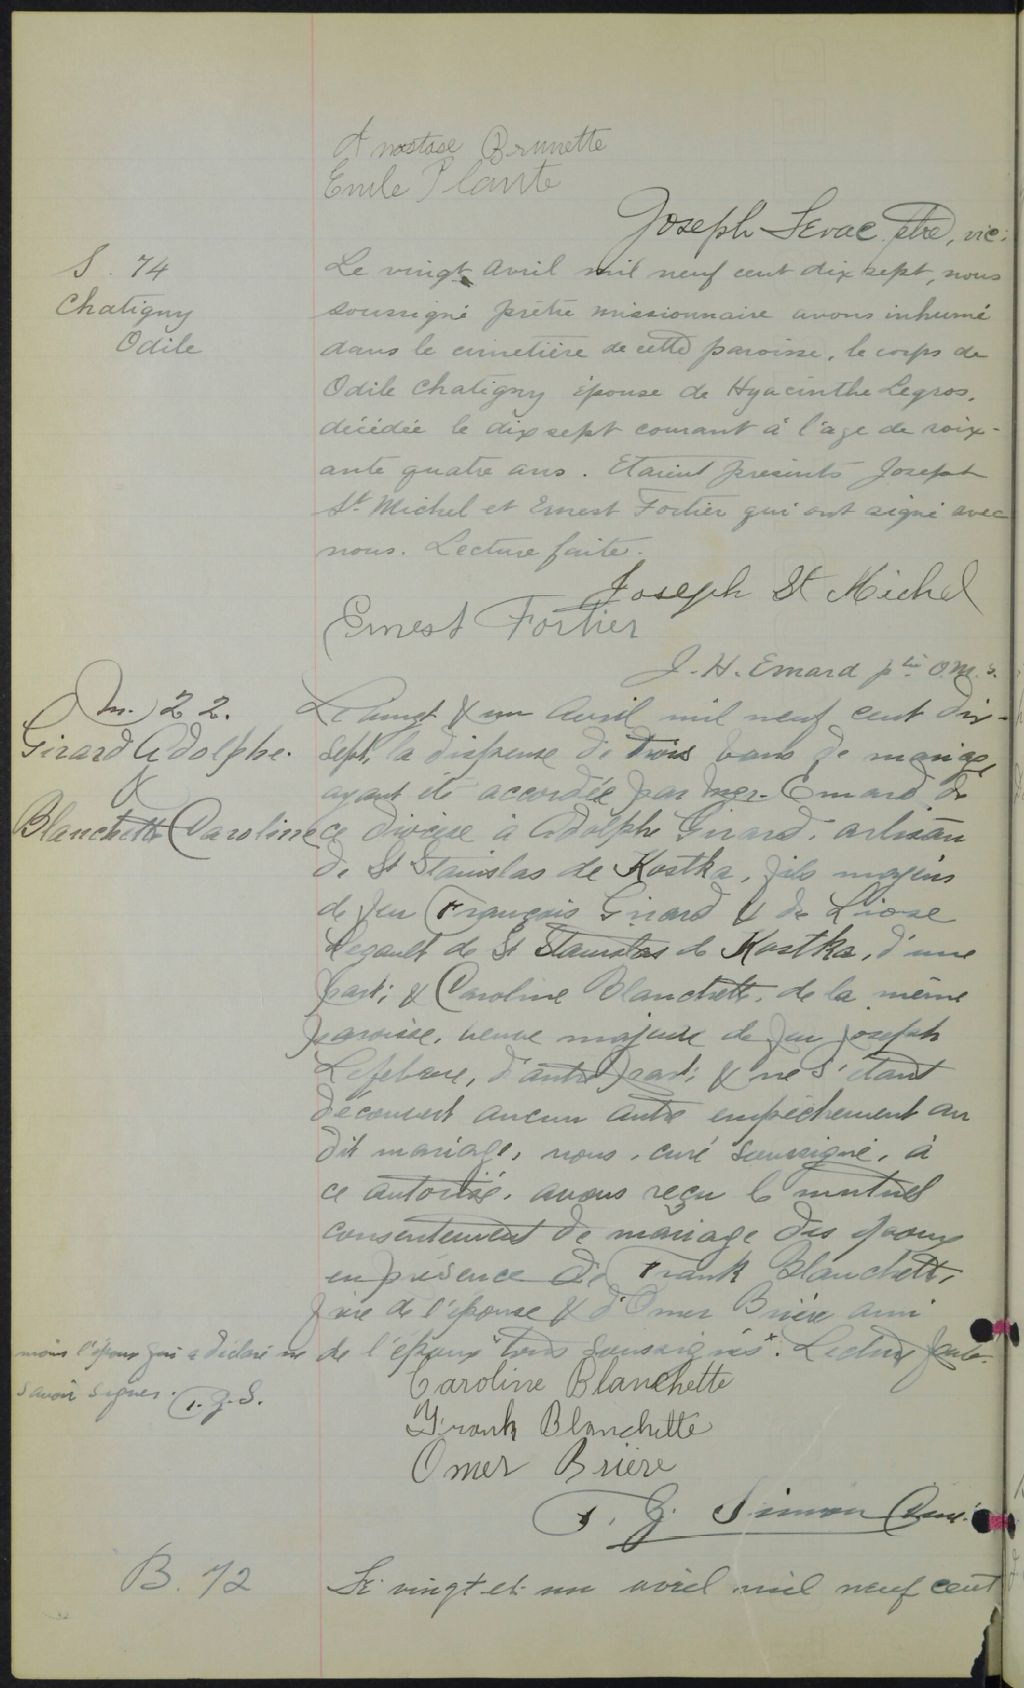 Anastase Brunette
Emile Plante
Joseph Levac ptre, vic.
S. 74
Chatigny
Odile
Le vingt avril mil neuf cent dix sept, nous
soussigné prêtre missionnaire avons inhumé
dans le cimetière de cette paroisse, le corps de
Odile Chatigny épouse de Hyacinthe Legros,
décédée le dix sept courant à l'âge de soix-
ante quatre ans. Etaient présents Joseph
St. Michel et Ernest Fortier qui ont signé avec
nous. Lecture faite.
Joseph St Michel
Ernest Fortier
J. H. Emard ptre O.M.I.
M. 22.
Girard Adolphe.
&
Blanchette Caroline
Le vingt & un Avril mil neuf cent dix-
sept, la dispense de trois bans de mariage
ayant été accordée par Mgr. Emard de
ce diocèse à Adolphe Girard, artisan
de St Stanislas de Kostka, fils majeur
de feu François Girard & de
Legault de St Stanislas de Kostka, d'une
part; & Caroline Blanchette, de la même
paroisse, veuve majeure de feu Joseph
Lefebvre, d'autre part; & ne s'étant
découvert aucun autre empêchement au
dit mariage, nous, curé soussigné, à
ce autorisé, avons reçu le mutuel
consentement de mariage des époux
en présence de Frank Blanchette,
père de l'épouse & d'Omer Brière ami
de l'époux tous soussignés. Lecture faite.
moins l'époux qui a déclaré ne
savoir signer. T. Z. S.
Caroline Blanchette
Frank Blanchette
Omer Brière
T. Z. Simon Curé.
B. 72
Le vingt et un avril mil neuf cent